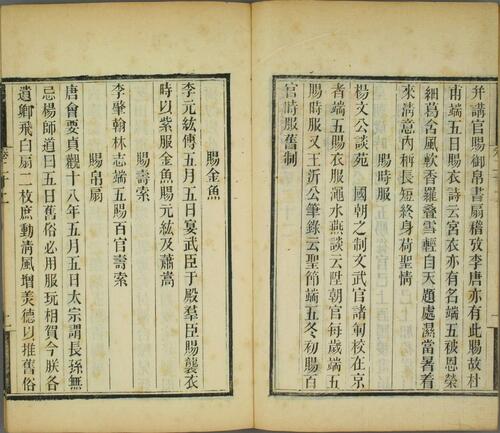 弁講官賜御帛書扇稽攷李唐亦有此賜故杜
甫端五日賜衣詩云宮衣亦有名端五被恩榮
細葛含風軟香羅疊雪輕自天題處濕當暑着
來淸意內稱長短終身荷聖情
賜時服
楊文公談苑國朝之制文武官諸軍校在京
者端五賜衣服澠水燕談云陞朝官每歲端五
賜時服又王沂公筆錄云聖節端五冬初賜百
官時服舊制
賜金魚
李元紘傳五月五日宴武臣于殿羣臣賜襲衣
時以紫服金魚賜元紘及蕭嵩
賜壽索
李肇翰林志端五賜百官壽索
賜帛扇
唐會要貞觀十八年五月五日太宗謂長孫無
忌楊師道曰五日舊俗必用服玩相賀今朕各
遺卿飛白扇二枚庶動淸風增美德以推舊俗